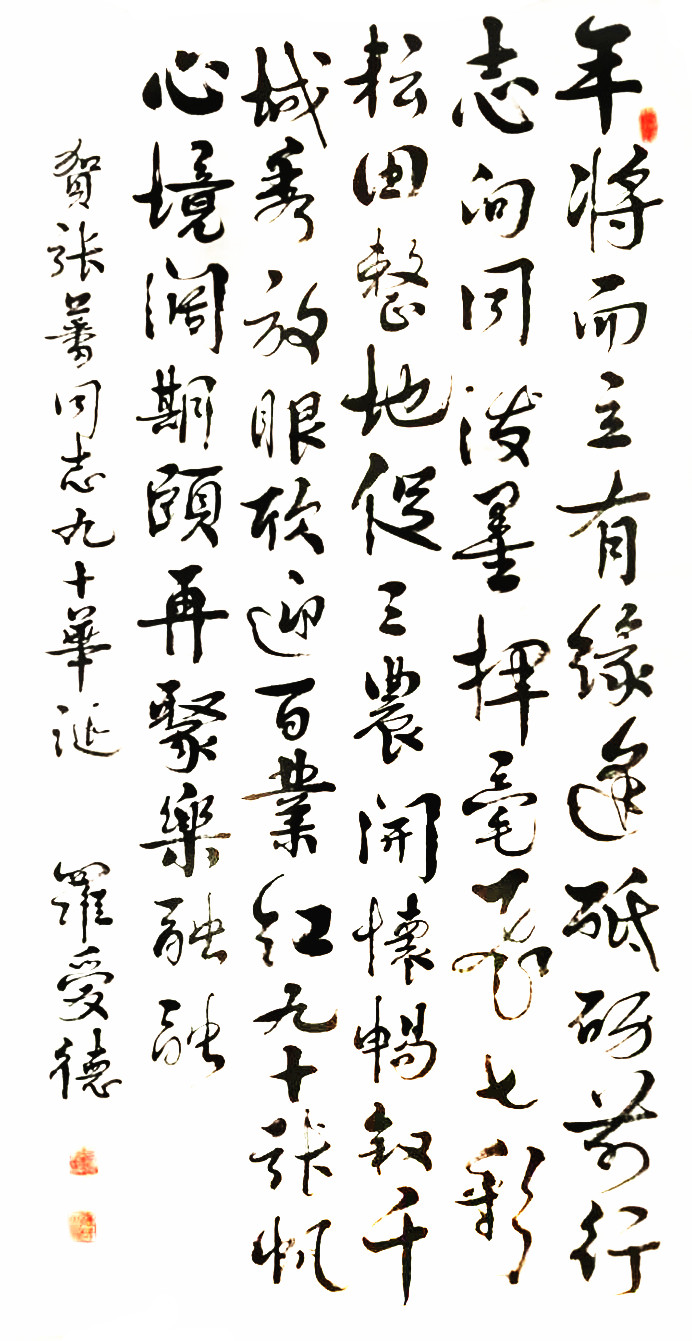 年將而立有緣逢砥礪前行
志向同潑墨揮毫飛七彩
耘田整地促三農開懷暢敘千
城秀放眼欣迎百業紅九十張帆
心境闊期頤再聚樂融融
賀張蕾同志九十華誕　羅愛德